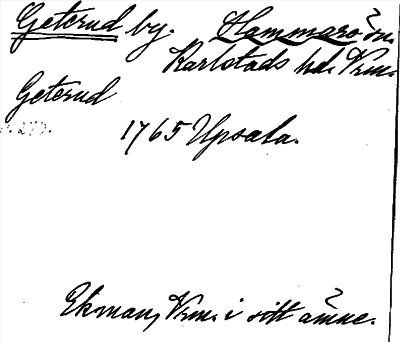 Geterud by. Hammarö sn.
Karlstads hd. Vrm.
Geterud
1765 Upsala.
Ekman, Vrm. i sitt ämne.